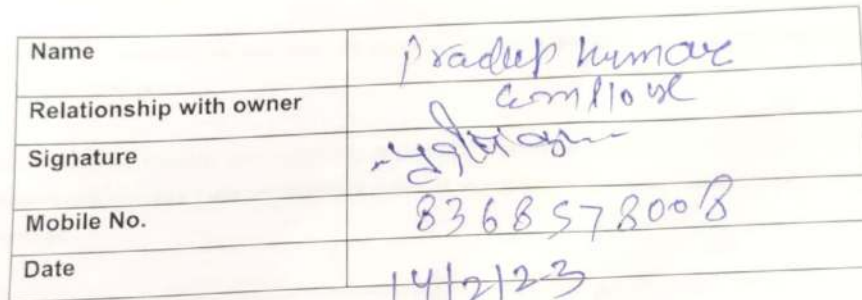 Name Pradeep Kumar
Relationship with owner
Signature
Mobile No. 8368578008
Date 14/2/23